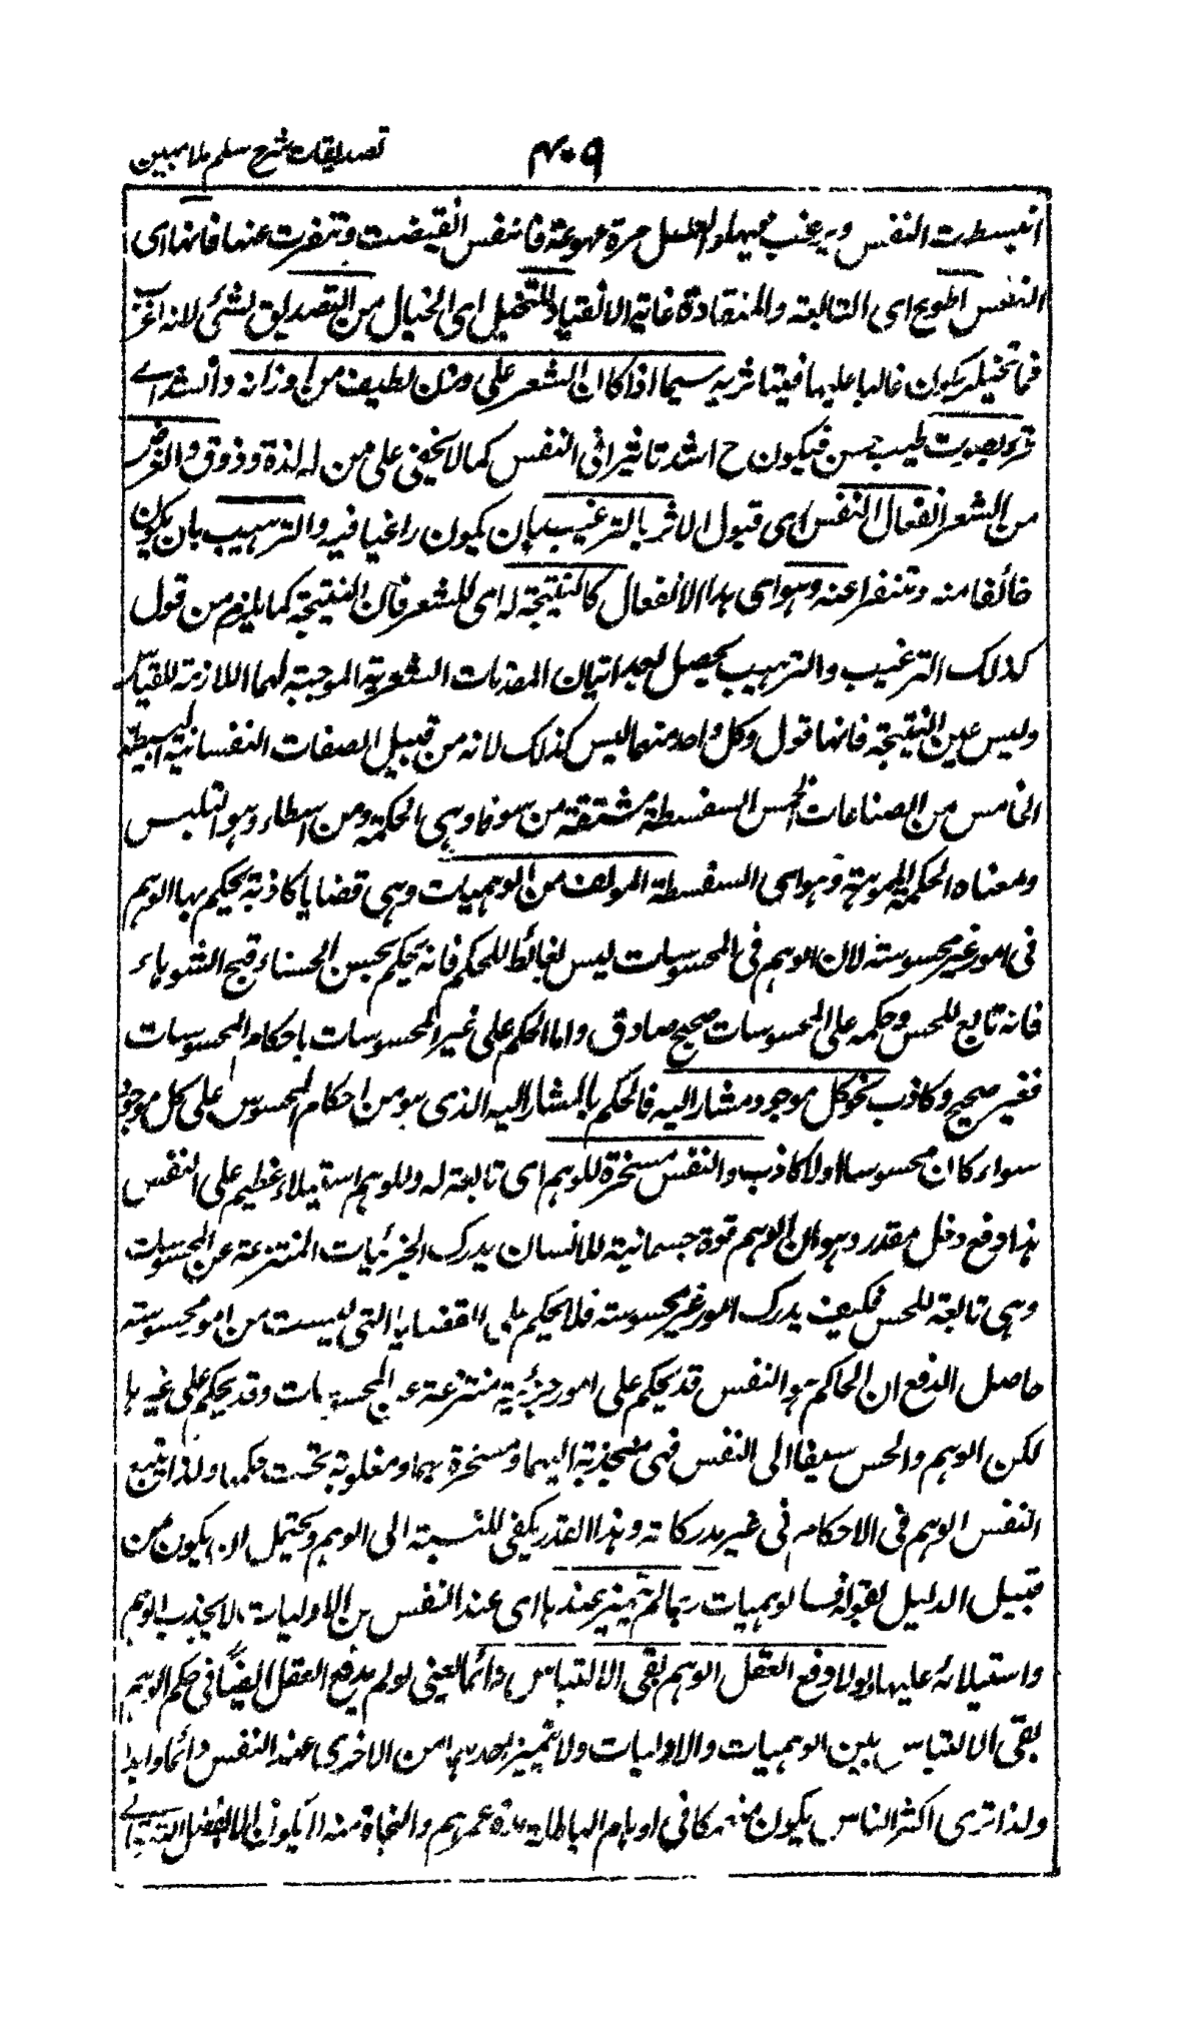 تصدیقات شرح سلم ملا مبین
۴۰۹
انبسطت النفس ویرغب فیها والعسل مرة مهوعة فالنفس انقبضت وتنفرت عنها فانها ای
النفس اطوع ای التابعة والمنقادة غایة الانقیاد للتخییل ای الخیال من التصدیق لشئ لانه اغر
فما تخیله یکون غالبا علیها فیتاثر به سیما اذا کان الشعر علی وزن لطیف من اوزانه وانشد ای
قرئ بصوت طیب حسن فیکون ح اشد تاثیرا فی النفس کما لا یخفی علی من له لذة وذوق والغرض
من الشعر انفعال النفس ای قبول الاثر بالترغیب بان یکون راغبا فیه والترهیب بان یکون
خائفا منه وتنفرا عنه وهو ای هذا الانفعال کالنتیجة له ای للشعر فان النتیجة کما یلزم من قول
کذلک الترغیب والترهیب یحصل بعد اتیان المقدمات الشعریة الموجبة لهما اللازمة للقیاس
ولیس عین النتیجة فانها قول وکل واحد منهما لیس کذلک لانه من قبیل الصفات النفسانیة البسیطة
الخامس من الصناعات الخمس السفسطة مشتقة من سوفا وهی الحکمة ومن اسطا وهو التلبس
ومعناه الحکمة المموهة وهو ای السفسطة المولف من الوهمیات وهی قضایا کاذبة یحکم بها الوهم
فی امور غیر محسوسة لان الوهم فی المحسوسات لیس بغائط للحکم فانه یحکم بحسن الحسناء وقبح الشوهاء
فانه تابع للحس وحکمه علی المحسوسات صحیح صادق واما الحکم علی غیر المحسوسات باحکام المحسوسات
فغیر صحیح وکاذب نحو کل موجود مشار الیه فالحکم بالمشار الیه الذی هو من احکام المحسوس علی کل موجود
سواء کان محسوسا اولا کاذب والنفس مسخرة للوهم ای تابعة له وللوهم استیلاء عظیم علی النفس
هذا دفع دخل مقدر وهو ان الوهم قوة جسمانیة للانسان یدرک الجزئیات المنتزعة عن المحسوسات
وهی تابعة للحس فکیف یدرک امور غیر محسوسة فلا یحکم علی القضایا التی لیست من امور محسوسة
حاصل الدفع ان الحاکم هو النفس قد یحکم علی امور جزئیة منتزعة عن المحسوسات وقد یحکم علی غیرها
لکن الوهم والحس سبقا الی النفس فهی منجذبة الیهما ومسخرة بهما ومغلوبة تحت حکمهما ولذا یتبع
النفس الوهم فی الاحکام فی غیر مدرکاته وهذا القدر یکفی للنسبة الی الوهم ویحتمل ان یکون من
قبیل الدلیل لقوله فالوهمیات ربما لم تمیز عندها ای عند النفس من الاولیات لا یجذب الوهم
واستیلائه علیها ولولا دفع العقل الوهم بقی الالتباس دائما یعنی لو لم یدفع العقل ایضا فی حکم الوهم
بقی الالتباس بین الوهمیات والاولیات ولا تمییز احدهما من الاخری عند النفس دائما وابدا
ولذا تری اکثر الناس یکون منهمکا فی اوهام الباطلة مدة عمرهم والنجاة منه لا یکون الا بفضل الله تعالی